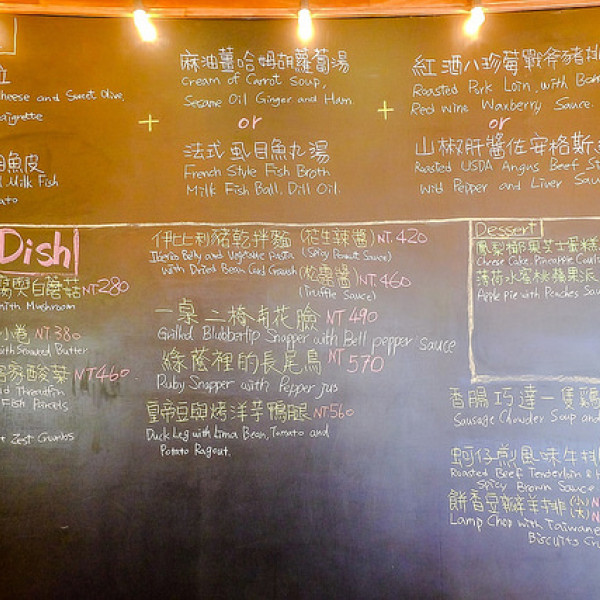 Cheese and Sweet Olive,
aigrette
目魚皮
Milk Fish
+
麻油薑哈姆胡蘿蔔湯
Cream of Carrot Soup,
Sesame Oil Ginger and Ham.
or
法式虱目魚丸湯
French Style Fish Broth
Milk Fish Ball, Dill Oil.
+
紅酒八珍莓戰斧豬排
Roasted Pork Loin, with
Red Wine Waxberry Sauce.
or
山椒肝醬佐安格斯
Roasted USDA Angus Beef
Wild Pepper and Liver
Dish
與白蘑菇 NT 280
with Mushroom
小卷 NT 380
with Butter
客家酸菜 NT 460
Threadfin
Fish
Zest Crumbs
伊比利豬乾拌麵 (花生辣醬) NT. 420
Iberico Belly and Vegetable Pasta (Spicy Peanut Sauce)
with Dried Bean Curd (松露醬) NT. 460
(Truffle Sauce)
一桌二椅有花臉 NT 490
Grilled Blubberlip Snapper with Bell pepper sauce
綠蔭裡的長尾鳥 NT 570
Ruby Snapper with Pepper jus
皇帝豆與烤洋芋鴨腿 NT 560
Duck Leg with Lima Bean, Tomato and
Potato Ragout.
Dessert
鳳梨椰果芝士蛋糕
Cheese Cake, Pineapple
薄荷水蜜桃蘋果派
Apple Pie with Peaches
香腸巧達一隻雞
Sausage Chowder Soup and
蚵仔煎風味牛排
Roasted Beef Tenderloin
Spicy Brown Sauce
餅香豆瓣羊排 (小) N
(大) N
Lamp Chop with Taiwan
Biscuits